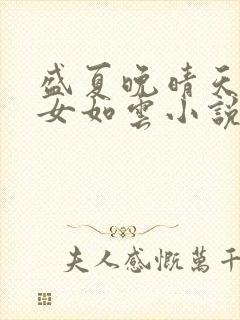 盛夏晚晴天
女如雲小說
夫人感慨萬千